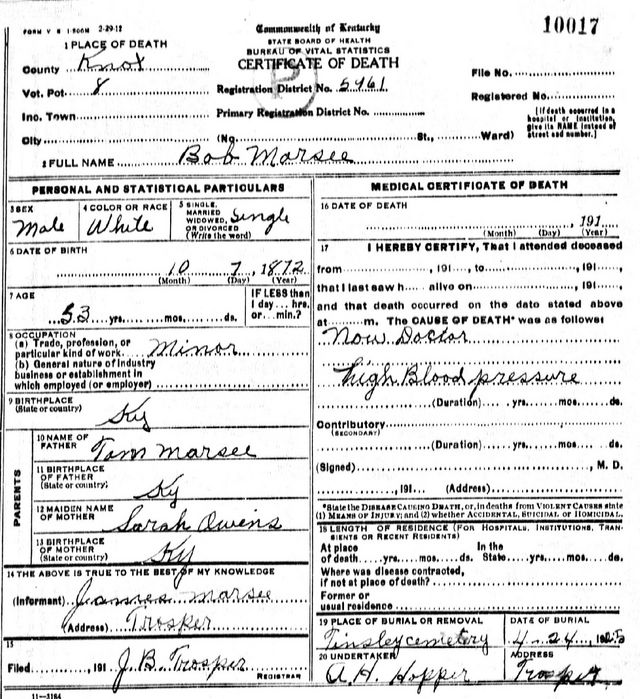 FORM V S 1 500M 2-29-12
Commonwealth of Kentucky
10017
STATE BOARD OF HEALTH
BUREAU OF VITAL STATISTICS
CERTIFICATE OF DEATH
1 PLACE OF DEATH
County Knox
Vot. Pct 8
Inc. Town
City
Registration District No. 5461
Primary Registration District No.
(No. St., Ward)
File No.
Registered No.
(If death occurred in a hospital or institution, give its NAME instead of street and number.)
2 FULL NAME Bob Marsee
PERSONAL AND STATISTICAL PARTICULARS
3 SEX
Male
4 COLOR OR RACE
White
5 SINGLE, MARRIED WIDOWED, OR DIVORCED (Write the word)
Single
6 DATE OF BIRTH
10 7, 1872
(Month) (Day) (Year)
7 AGE
53 yrs. mos. ds.
IF LESS than 1 day... hrs. or... min.?
8 OCCUPATION
(a) Trade, profession, or particular kind of work Minor
(b) General nature of industry business or establishment in which employed (or employer)
9 BIRTHPLACE
(State or country)
Ky
PARENTS
10 NAME OF FATHER
Tom Marsee
11 BIRTHPLACE OF FATHER
(State or country)
Ky
12 MAIDEN NAME OF MOTHER
Sarah Owens
13 BIRTHPLACE OF MOTHER
(State or country)
Ky
14 THE ABOVE IS TRUE TO THE BEST OF MY KNOWLEDGE
(Informant) James Marsee
(Address) Trosper
15
Filed, 191 J.B. Trosper
REGISTRAR
11-3184
MEDICAL CERTIFICATE OF DEATH
16 DATE OF DEATH
191
(Month) (Day) (Year)
17 I HEREBY CERTIFY, That I attended deceased
from, 191, to, 191,
that I last saw h alive on, 191,
and that death occurred on the date stated above
at m. The CAUSE OF DEATH* was as follows:
Now Doctor
high Blood pressure
(Duration) yrs. mos. ds.
Contributory
(SECONDARY)
(Duration) yrs. mos. ds.
(Signed), M. D.
, 191 (Address)
*State the DISEASE CAUSING DEATH, or, in deaths from VIOLENT CAUSES state
(1) MEANS OF INJURY; and (2) whether ACCIDENTAL, SUICIDAL or HOMICIDAL.
18 LENGTH OF RESIDENCE (FOR HOSPITALS, INSTITUTIONS, TRANSIENTS OR RECENT RESIDENTS)
At place of death yrs. mos. ds. In the State yrs. mos. ds.
Where was disease contracted,
if not at place of death?
Former or
usual residence
19 PLACE OF BURIAL OR REMOVAL
Tinsley cemetery
DATE OF BURIAL
4-24, 1925
20 UNDERTAKER
A. H. Hopper
ADDRESS
Trosper